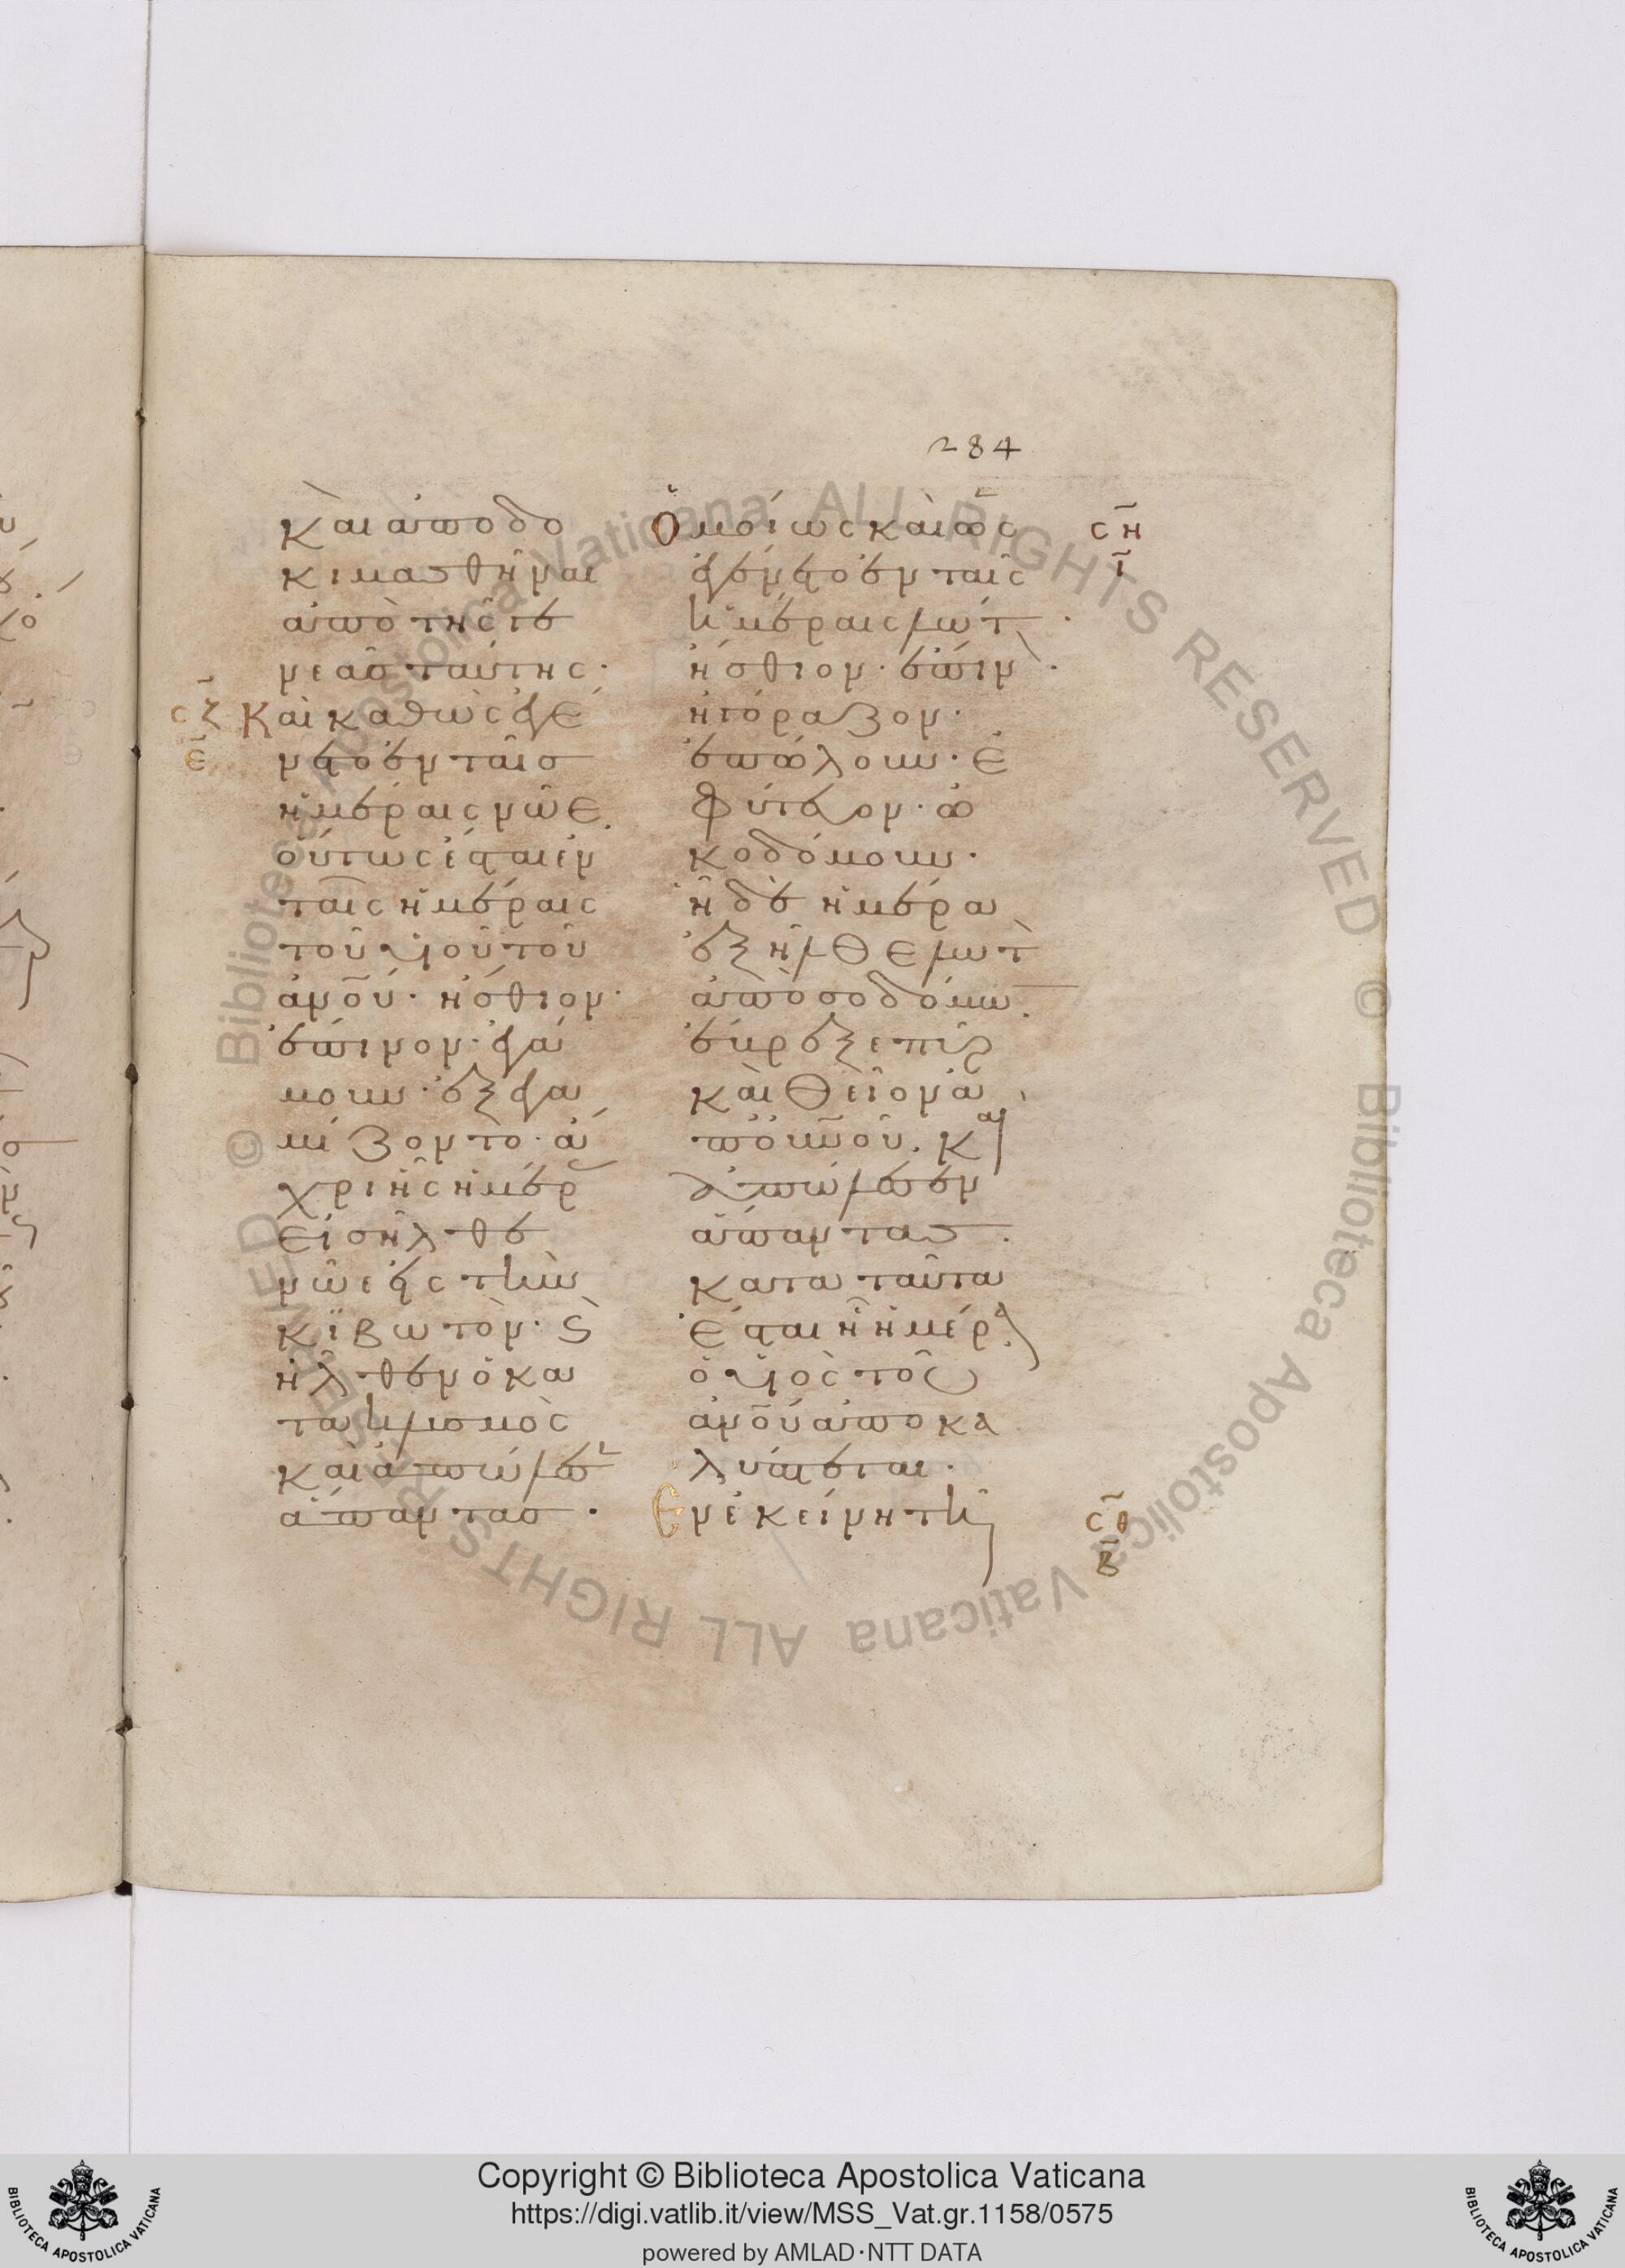 284
καὶ ἀποδο
κιμασθῆναι
ἀπὸ τῆς γε
νεᾶσ ταύτης·
σζ Καὶ καθὼς ἐγέ
ε νετο ἐν ταῖσ
ἡμέραις νῶε
οὕτως ἔσται ἐν
ταῖς ἡμέραις
τοῦ υἱοῦ τοῦ
ἀνου· ἤσθιον·
ἔπινον· ἐγά
μουν· ἐξεγα
μίζοντο· ἄ
χρι ἧς ἡμέρ
εἰσῆλθε
νῶε εἰς τὴν
κϊβωτὸν· ϛ
ἦλθεν ὁ κα
τακλυσμὸς
καὶ ἀπώλεσ
ἅπαντασ·
Ὁμοίως καὶ ὡς
ἐγένετο ἐν ταῖς
ἡμέραις λώτ·
ἤσθιον· ἔπιν·
ἠγόραζον·
ἐπώλουν· ἐ
φύτευον· ὠ
κοδόμουν·
ἧ δὲ ἡμέρα
ἐξῆλθε λὼτ
ἀπὸ σοδόμω
ἔβρεξε πῦρ
καὶ θεῖον ἀ
π' οὐνοῦ. κ
ἀπώλεσεν
ἅπαντασ.
κατα ταῦτα
ἔσται ἧ ἡμέρα
ὁ υἱὸς τοῦ
ἀνου ἀποκα
λύπτεται·
Ἐν ἐκείνη τῆ
ση
ι
σθ
β
Copyright © Biblioteca Apostolica Vaticana
https://digi.vatlib.it/view/MSS_Vat.gr.1158/0575
powered by AMLAD·NTT DATA
BIBLIOTECA APOSTOLICA VATICANA
BIBLIOTECA APOSTOLICA VATICANA
© Biblioteca Apostolica Vaticana ALL RIGHTS RESERVED © Biblioteca Apostolica Vaticana ALL RIGHTS RESERVED